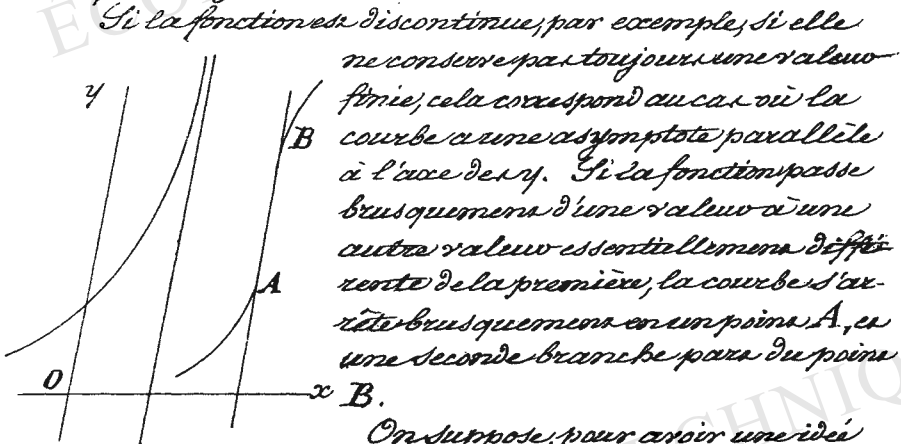 Si la fonction est discontinue, par exemple, si elle
ne conserve pas toujours une valeur
finie, cela correspond au cas où la
courbe a une asymptote parallèle
à l'axe des y. Si la fonction passe
brusquement d'une valeur à une
autre valeur essentiellement diffé-
rente de la première, la courbe s'ar-
rête brusquement en un point A, et
une seconde branche part du point
B.
On suppose, pour avoir une idée
y
B
A
O
x